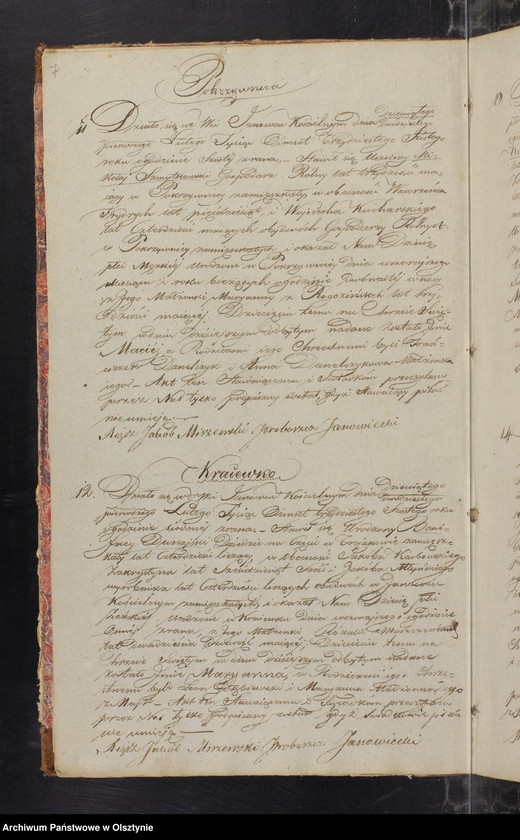 7
Pokrzywnica
11
Działo się we Wsi Janowcu Kościelnym dnia Dziewiątego
Lutego Tysiąc Ośmset Trzydziestego Szóstego
roku o godzinie szóstej zrana. Stawił się
Gospodarz Rolny lat trzydzieści ma-
jący w Pokrzywnicy zamieszkały w obecności Wawrzeńca
lat pięćdziesiąt i Wojciecha Kucharskiego
lat Czterdzieści mających obydwóch Gospodarzy Rolnych
w Pokrzywnicy zamieszkałych i okazał Nam Dziecię
płci Męskiej urodzone w Pokrzywnicy dnia wczorajszego
miesiąca i roku bieżących o godzinie
z Jego Małżonki Maryanny z Rogozińskich lat trzy-
dzieści mającej. Dziecięciu temu na Chrzcie Świę-
tym w dniu dzisiejszym odbytym nadane zostało Imie
Maciej a Rodzicami jego Chrzestnemi byli
Danilczyk i Anna Danilczykowa Małżonka
jegoż. Akt ten Stawającemu i Świadkom przeczytany
przez Nas tylko podpisany został, gdyż Stawający pisać
nie umieją.
Xiądz Jakób Mirzewski Proboszcz Janowiecki
Krajewko
12.
Działo się we Wsi Janowcu Kościelnym dnia Dziewiątego
Lutego Tysiąc Ośmset Trzydziestego Szóstego roku
o godzinie siódmej zrana. Stawił się Urodzony Boni-
facy Dziedzic na Części w zamiesz-
kały lat Czterdzieści liczący w obecności Jakóba Karbowskiego
Zakrystyana lat i Jakóba Młyńskiego
wyrobnika lat Czterdzieści liczących obudwóch w Janowcu
Kościelnym zamieszkałych i okazał Nam Dziecię płci
Żeńskiej urodzone w Krajewku dnia wczorajszego o godzinie
zrana z jego Małżonki Rozalii
lat dwadzieścia mającej. Dziecięciu temu na
Chrzcie Świętym w dniu Dzisiejszym odbytym nadane
zostało Imie Maryanna, a Rodzicami jego Chrze-
stnemi byli Jan i Maryanna
z Akt ten Stawającemu i Świadkom przeczytany
przez Nas tylko podpisany został gdyż Świadkowie pisać
nie umieją.
Xiądz Jakób Mirzewski Proboszcz Janowiecki
Archiwum Państwowe w Olsztynie